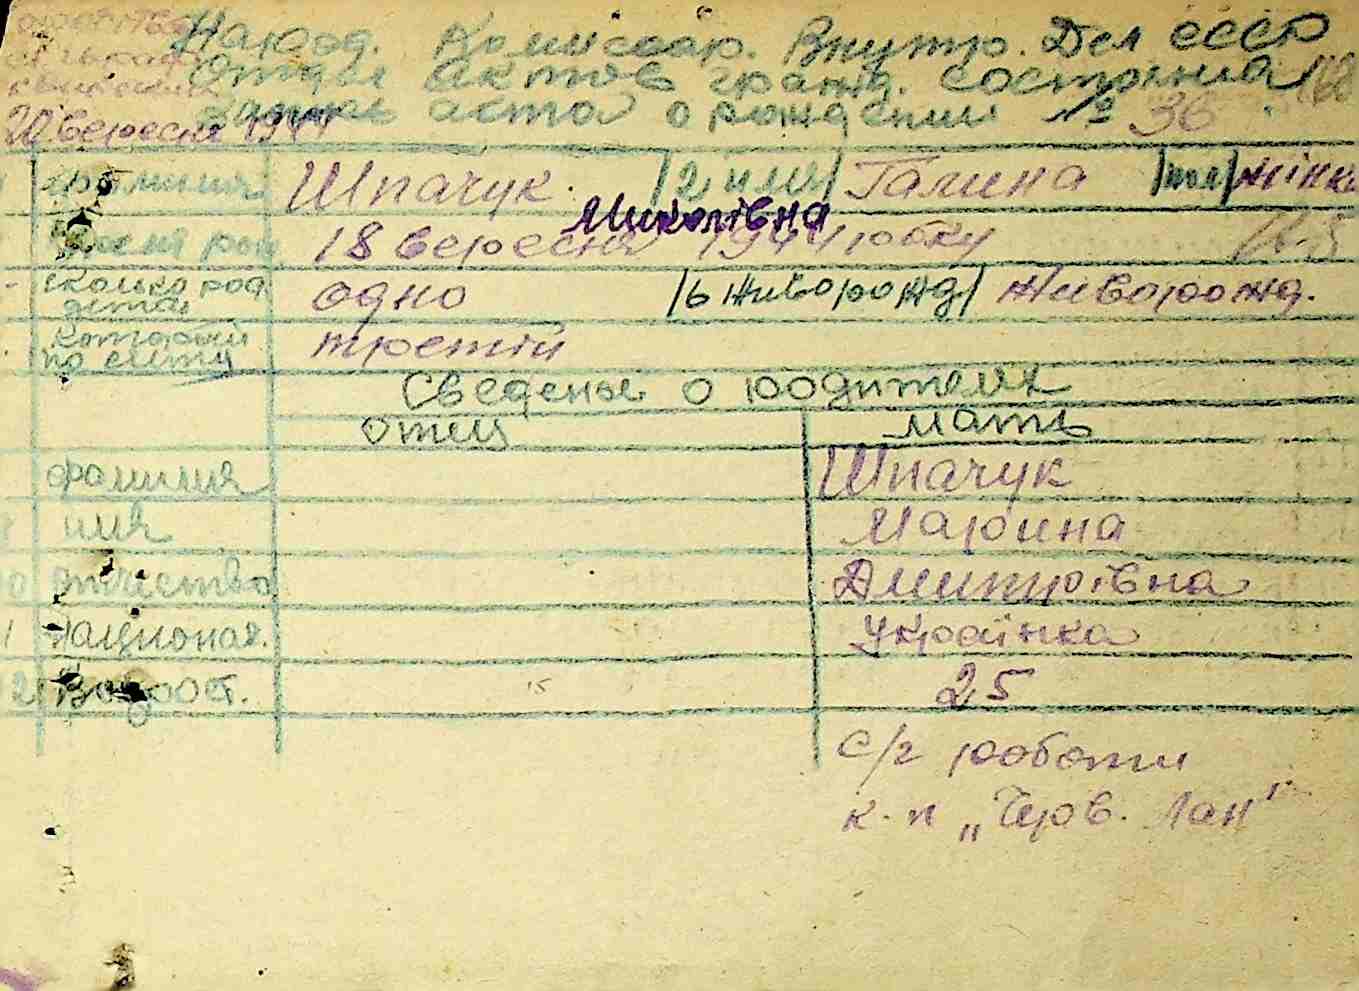 Народ. Комиссар. Внутр. Дел СССР
Отдел актов гражд. состояния 168
Запись акта о рождении № 36
20 вересня 1944
фамилия Шпачук. /2 имя/ Галина /пол/ жінка
Миколівна
Время рож 18 вересня 1944 року
Сколько род. детей одно /6 живорожд/ живорожд.
Который по счету третій
Сведенье о родителях
Отец Мать
фамилия Шпачук
имя Марина
Отчество Дмитрівна
национал. Українка
12 Возраст. 15 25
с/г роботи
к-п „Черв. Лан"